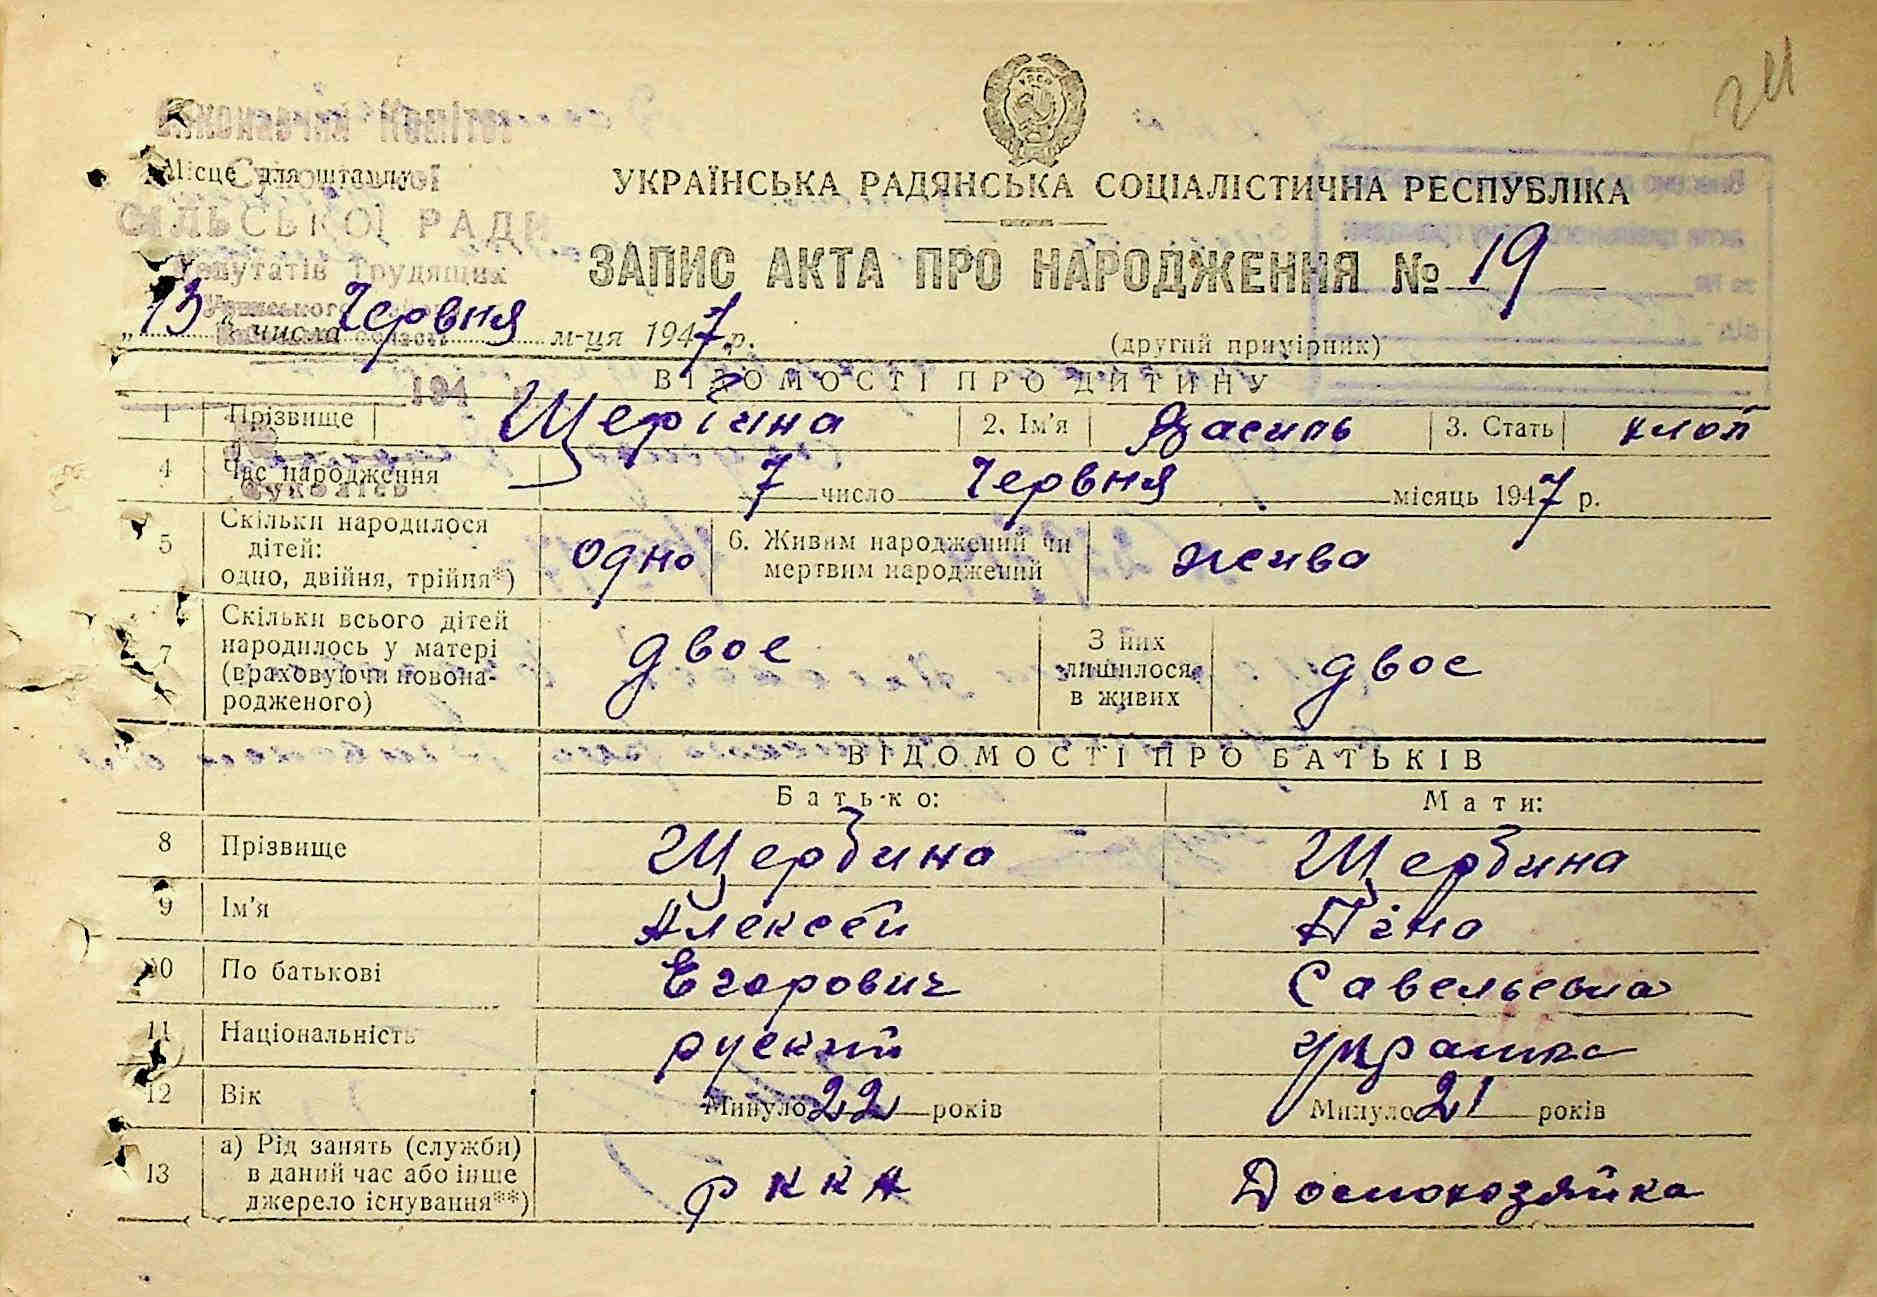 24
Виконавчий Комітет
Місце для штампу
СІЛЬСЬКОЇ РАДИ
Депутатів Трудящих
УКРАЇНСЬКА РАДЯНСЬКА СОЦІАЛІСТИЧНА РЕСПУБЛІКА
ЗАПИС АКТА ПРО НАРОДЖЕННЯ № 19
„13" числа Червня м-ця 1947 р.
(другий примірник)
194
ВІДОМОСТІ ПРО ДИТИНУ
1 Прізвище Щербина 2. Ім'я Василь 3. Стать хлоп
4 Час народження 7 число Червня місяць 1947 р.
5 Скільки народилося дітей: одно, двійня, трійня*) одно 6. Живим народжений чи мертвим народжений жива
7 Скільки всього дітей народилось у матері (враховуючи новонародженого) двое З них лишилося в живих двое
ВІДОМОСТІ ПРО БАТЬКІВ
Батько: Мати:
8 Прізвище Щербина Щербина
9 Ім'я Алексей Ніна
10 По батькові Егорович Савельевна
11 Національність руский украінка
12 Вік Минуло 22 років Минуло 21 років
13 а) Рід занять (служби) в даний час або інше джерело існування**) РККА Домохозяйка